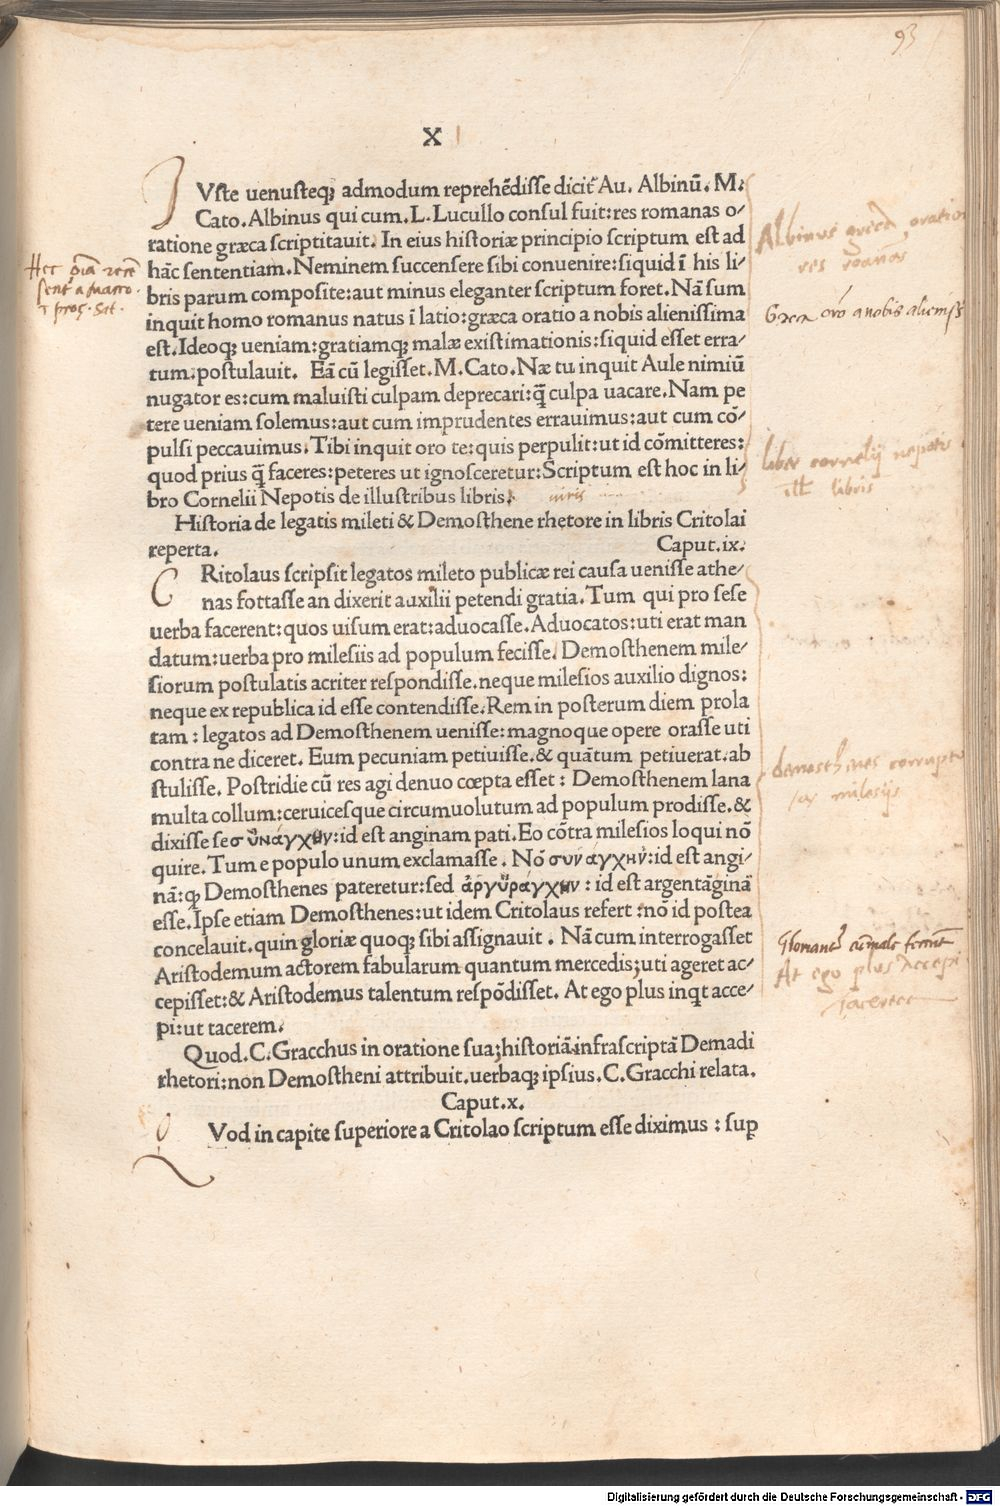 93
X
J Vste uenusteq; admodum reprehēdisse dicit̄ Au. Albinū. M.
Cato. Albinus qui cum. L. Lucullo consul fuit:res romanas o/
ratione græca scriptitauit. In eius historiæ principio scriptum est ad
hāc sententiam. Neminem succensere sibi conuenire:siquid ī his li/
bris parum composite:aut minus eleganter scriptum foret. Nā sum
inquit homo romanus natus ī latio:græca oratio a nobis alienissima
est. Ideoq; ueniam:gratiamq; malæ existimationis:siquid esset erra/
tum:postulauit. Eā cū legisset. M. Cato. Næ tu inquit Aule nimiū
nugator es:cum maluisti culpam deprecari:q̄ culpa uacare. Nam pe
tere ueniam solemus:aut cum imprudentes errauimus:aut cum cō/
pulsi peccauimus. Tibi inquit oro te:quis perpulit:ut id cōmitteres:
quod prius q̄ faceres:peteres ut ignosceretur:Scriptum est hoc in li/
bro Cornelii Nepotis de illustribus libris. uiris
Historia de legatis mileti & Demosthene rhetore in libris Critolai
reperta. Caput.ix.
C Ritolaus scripsit legatos mileto publicæ rei causa uenisse athe/
nas fottasse an dixerit auxilii petendi gratia. Tum qui pro sese
uerba facerent:quos uisum erat:aduocasse. Aduocatos:uti erat man
datum:uerba pro milesiis ad populum fecisse. Demosthenem mile/
siorum postulatis acriter respondisse.neque milesios auxilio dignos:
neque ex republica id esse contendisse. Rem in posterum diem prola
tam : legatos ad Demosthenem uenisse:magnoque opere orasse uti
contra ne diceret. Eum pecuniam petiuisse.& quātum petiuerat.ab
stulisse. Postridie cū res agi denuo cœpta esset : Demosthenem lana
multa collum:ceruicesque circumuolutum ad populum prodisse.&
dixisse se συνάγχην:id est anginam pati. Eo cōtra milesios loqui nō
quire. Tum e populo unum exclamasse. Nō συνάγχην:id est angi/
nā:q; Demosthenes pateretur:sed ἀργυράγχην : id est argentāginā
esse. Ipse etiam Demosthenes:ut idem Critolaus refert :nō id postea
concelauit.quin gloriæ quoq; sibi assignauit . Nā cum interrogasset
Aristodemum actorem fabularum quantum mercedis;uti ageret ac/
cepisset:& Aristodemus talentum respōdisset. At ego plus inqt acce/
pi:ut tacerem.
Quod. C. Gracchus in oratione sua;historiā infrascriptā Demadi
rhetori:non Demostheni attribuit.uerbaq; ipsius. C. Gracchi relata.
Caput.x.
Q Vod in capite superiore a Critolao scriptum esse diximus : sup
Albinus græca oratio
res roanas
Græca orō a nobis alieniss
liber cornelij nepotis
ill. libris
demosthenes corruptus
milesijs
At ego plus accepi
tacerem
Digitalisierung gefördert durch die Deutsche Forschungsgemeinschaft - DFG